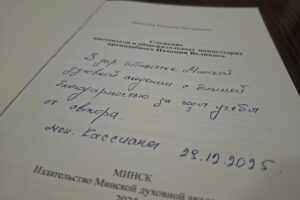 Служение
настоятеля в общежительных монастырях
преподобного Пахомия Великого
В дар библиотеке Минской
духовной академии с большой
благодарностью за годы учёбы
от автора.
мон. Кассиана 29.12.2025.
МИНСК
Издательство Минской духовной